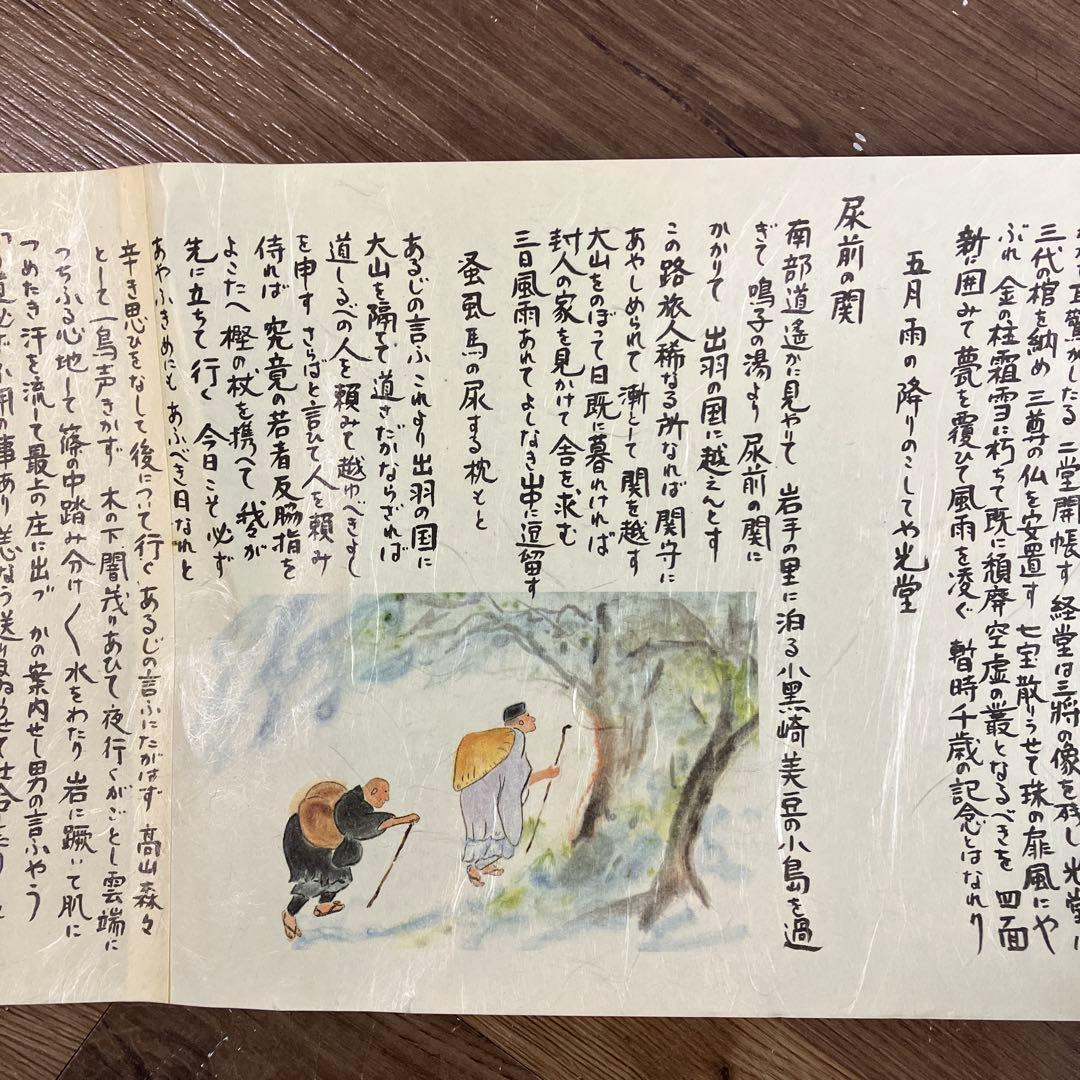 三代の棺を納め 三尊の仏を安置す 七宝散りうせて珠の扉風にや
ぶれ 金の柱霜雪に朽ちて既に頽廃空虚の叢となるべきを 四面
新に囲みて甍を覆ひて風雨を凌ぐ 暫時千歳の記念とはなれり
五月雨の降りのこしてや光堂
尿前の関
南部道遥かに見やりて 岩手の里に泊る小黒崎美豆の小島を過
ぎて 鳴子の湯より 尿前の関に
かかりて 出羽の国に越えんとす
この路旅人稀なる所なれば 関守に
あやしめられて 漸として 関を越す
大山をのぼって日既に暮れければ
封人の家を見かけて 舎を求む
三日風雨あれて よしなき山中に逗留す
蚤虱馬の尿する枕もと
あるじの言ふ これより出羽の国に
大山を隔てて 道さだかならざれば
道しるべの人を頼みて越ゆべきよし
を申す さらばと言ひて 人を頼み
侍れば 究竟の若者 反脇指を
よこたへ 樫の杖を携へて 我々が
先に立ちて行く 今日こそ必ず
あやふきめにも あふべき日なれと
辛き思ひをなして 後について行く あるじの言ふにたがはず 高山森々
として 一鳥声きかず 木の下闇茂りあひて 夜行くがごとし雲端に
つちふる心地して 篠の中踏み分け〱 水をわたり 岩に蹶いて 肌に
つめたき汗を流して 最上の庄に出づ かの案内せし男の言ふやう